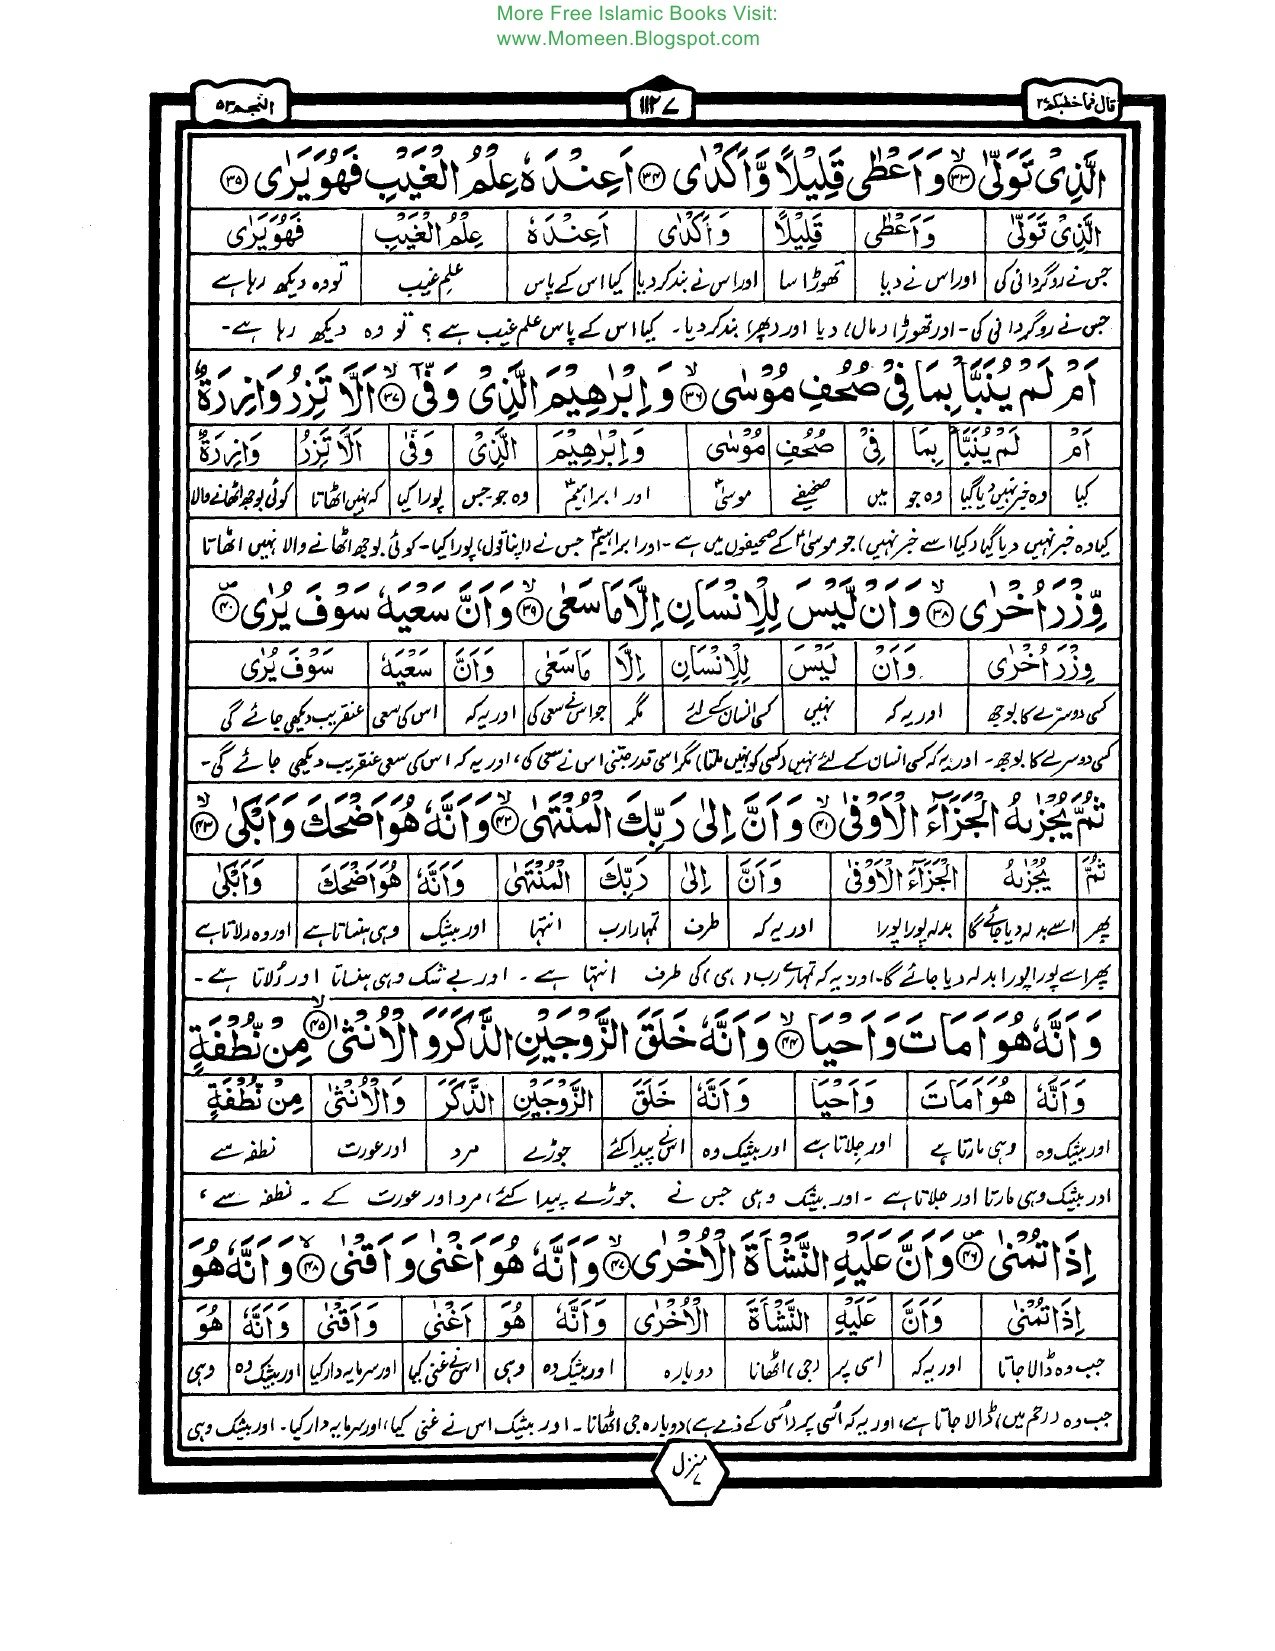 More Free Islamic Books Visit:
www.Momeen.Blogspot.com
قال فما خطبكم ٢٧
١١٢٧
النجم ٥٣
الَّذِىْ تَوَلّٰى ﴿٣٣﴾ وَاَعْطٰى قَلِيْلًا وَّاَكْدٰى ﴿٣٤﴾ اَعِنْدَهٗ عِلْمُ الْغَيْبِ فَهُوَ يَرٰى ﴿٣٥﴾
الَّذِىْ تَوَلّٰى وَاَعْطٰى قَلِيْلًا وَاَكْدٰى اَعِنْدَهٗ عِلْمُ الْغَيْبِ فَهُوَ يَرٰى
جس نے روگردانی کی اور اس نے دیا تھوڑا سا اور اس نے بند کر دیا کیا اس کے پاس علمِ غیب تو وہ دیکھ رہا ہے
جس نے روگردانی کی۔ اور تھوڑا (مال) دیا اور (پھر) بند کر دیا۔ کیا اس کے پاس علم غیب ہے؟ تو وہ دیکھ رہا ہے۔
اَمْ لَمْ يُنَبَّاْ بِمَا فِىْ صُحُفِ مُوْسٰى ﴿٣٦﴾ وَاِبْرٰهِيْمَ الَّذِىْ وَفّٰى ﴿٣٧﴾ اَلَّا تَزِرُ وَازِرَةٌ
اَمْ لَمْ يُنَبَّاْ بِمَا فِىْ صُحُفِ مُوْسٰى وَاِبْرٰهِيْمَ الَّذِىْ وَفّٰى اَلَّا تَزِرُ وَازِرَةٌ
کیا وہ خبر نہیں دیا گیا وہ جو میں صحیفے موسیٰؑ اور ابراہیمؑ وہ جو جس پورا کیا کہ نہیں اٹھاتا کوئی بوجھ اٹھانے والا
کیا وہ خبر نہیں دیا گیا (کیا اسے خبر نہیں) جو موسیٰؑ کے صحیفوں میں ہے۔ اور ابراہیمؑ جس نے (اپنا قول) پورا کیا۔ کوئی بوجھ اٹھانے والا نہیں اٹھاتا
وِّزْرَ اُخْرٰى ﴿٣٨﴾ وَاَنْ لَّيْسَ لِلْاِنْسَانِ اِلَّا مَا سَعٰى ﴿٣٩﴾ وَاَنَّ سَعْيَهٗ سَوْفَ يُرٰى ﴿٤٠﴾
وِزْرَ اُخْرٰى وَاَنْ لَيْسَ لِلْاِنْسَانِ اِلَّا مَا سَعٰى وَاَنَّ سَعْيَهٗ سَوْفَ يُرٰى
کسی دوسرے کا بوجھ اور یہ کہ نہیں کسی انسان کے لئے مگر جو اس نے سعی کی اور یہ کہ اس کی سعی عنقریب دیکھی جائے گی
کسی دوسرے کا بوجھ۔ اور یہ کہ کسی انسان کے لئے نہیں (کسی کو نہیں ملتا) مگر اسی قدر جتنی اس نے سعی کی، اور یہ کہ اس کی سعی عنقریب دیکھی جائے گی۔
ثُمَّ يُجْزٰىهُ الْجَزَآءَ الْاَوْفٰى ﴿٤١﴾ وَاَنَّ اِلٰى رَبِّكَ الْمُنْتَهٰى ﴿٤٢﴾ وَاَنَّهٗ هُوَ اَضْحَكَ وَاَبْكٰى ﴿٤٣﴾
ثُمَّ يُجْزٰىهُ الْجَزَآءَ الْاَوْفٰى وَاَنَّ اِلٰى رَبِّكَ الْمُنْتَهٰى وَاَنَّهٗ هُوَ اَضْحَكَ وَاَبْكٰى
پھر اسے بدلہ دیا جائے گا بدلہ پورا پورا اور یہ کہ طرف تمہارا رب انتہا اور بیشک وہی ہنساتا ہے اور وہ رلاتا ہے
پھر اسے پورا پورا بدلہ دیا جائے گا۔ اور یہ کہ تمہارے رب (ہی) کی طرف انتہا ہے۔ اور بے شک وہی ہنساتا اور رُلاتا ہے۔
وَاَنَّهٗ هُوَ اَمَاتَ وَاَحْيَا ﴿٤٤﴾ وَاَنَّهٗ خَلَقَ الزَّوْجَيْنِ الذَّكَرَ وَالْاُنْثٰى ﴿٤٥﴾ مِنْ نُّطْفَةٍ
وَاَنَّهٗ هُوَ اَمَاتَ وَاَحْيَا وَاَنَّهٗ خَلَقَ الزَّوْجَيْنِ الذَّكَرَ وَالْاُنْثٰى مِنْ نُطْفَةٍ
اور بیشک وہ وہی مارتا ہے اور جِلاتا ہے اور بیشک وہ اس نے پیدا کئے جوڑے مرد اور عورت نطفہ سے
اور بیشک وہی مارتا اور جلاتا ہے۔ اور بیشک وہی جس نے جوڑے پیدا کئے، مرد اور عورت کے۔ نطفہ سے،
اِذَا تُمْنٰى ﴿٤٦﴾ وَاَنَّ عَلَيْهِ النَّشْاَةَ الْاُخْرٰى ﴿٤٧﴾ وَاَنَّهٗ هُوَ اَغْنٰى وَاَقْنٰى ﴿٤٨﴾ وَاَنَّهٗ هُوَ
اِذَا تُمْنٰى وَاَنَّ عَلَيْهِ النَّشْاَةَ الْاُخْرٰى وَاَنَّهٗ هُوَ اَغْنٰى وَاَقْنٰى وَاَنَّهٗ هُوَ
جب وہ ڈالا جاتا اور یہ کہ اسی پر (جی) اٹھانا دوبارہ اور بیشک وہ وہی اس نے غنی کیا اور سرمایہ دار کیا اور بیشک وہ وہی
جب وہ (رحم میں) ڈالا جاتا ہے، اور یہ کہ اُسی پر (اُسی کے ذمے ہے) دوبارہ جی اٹھانا۔ اور بیشک اس نے غنی کیا، اور سرمایہ دار کیا۔ اور بیشک وہی
منزل ٧